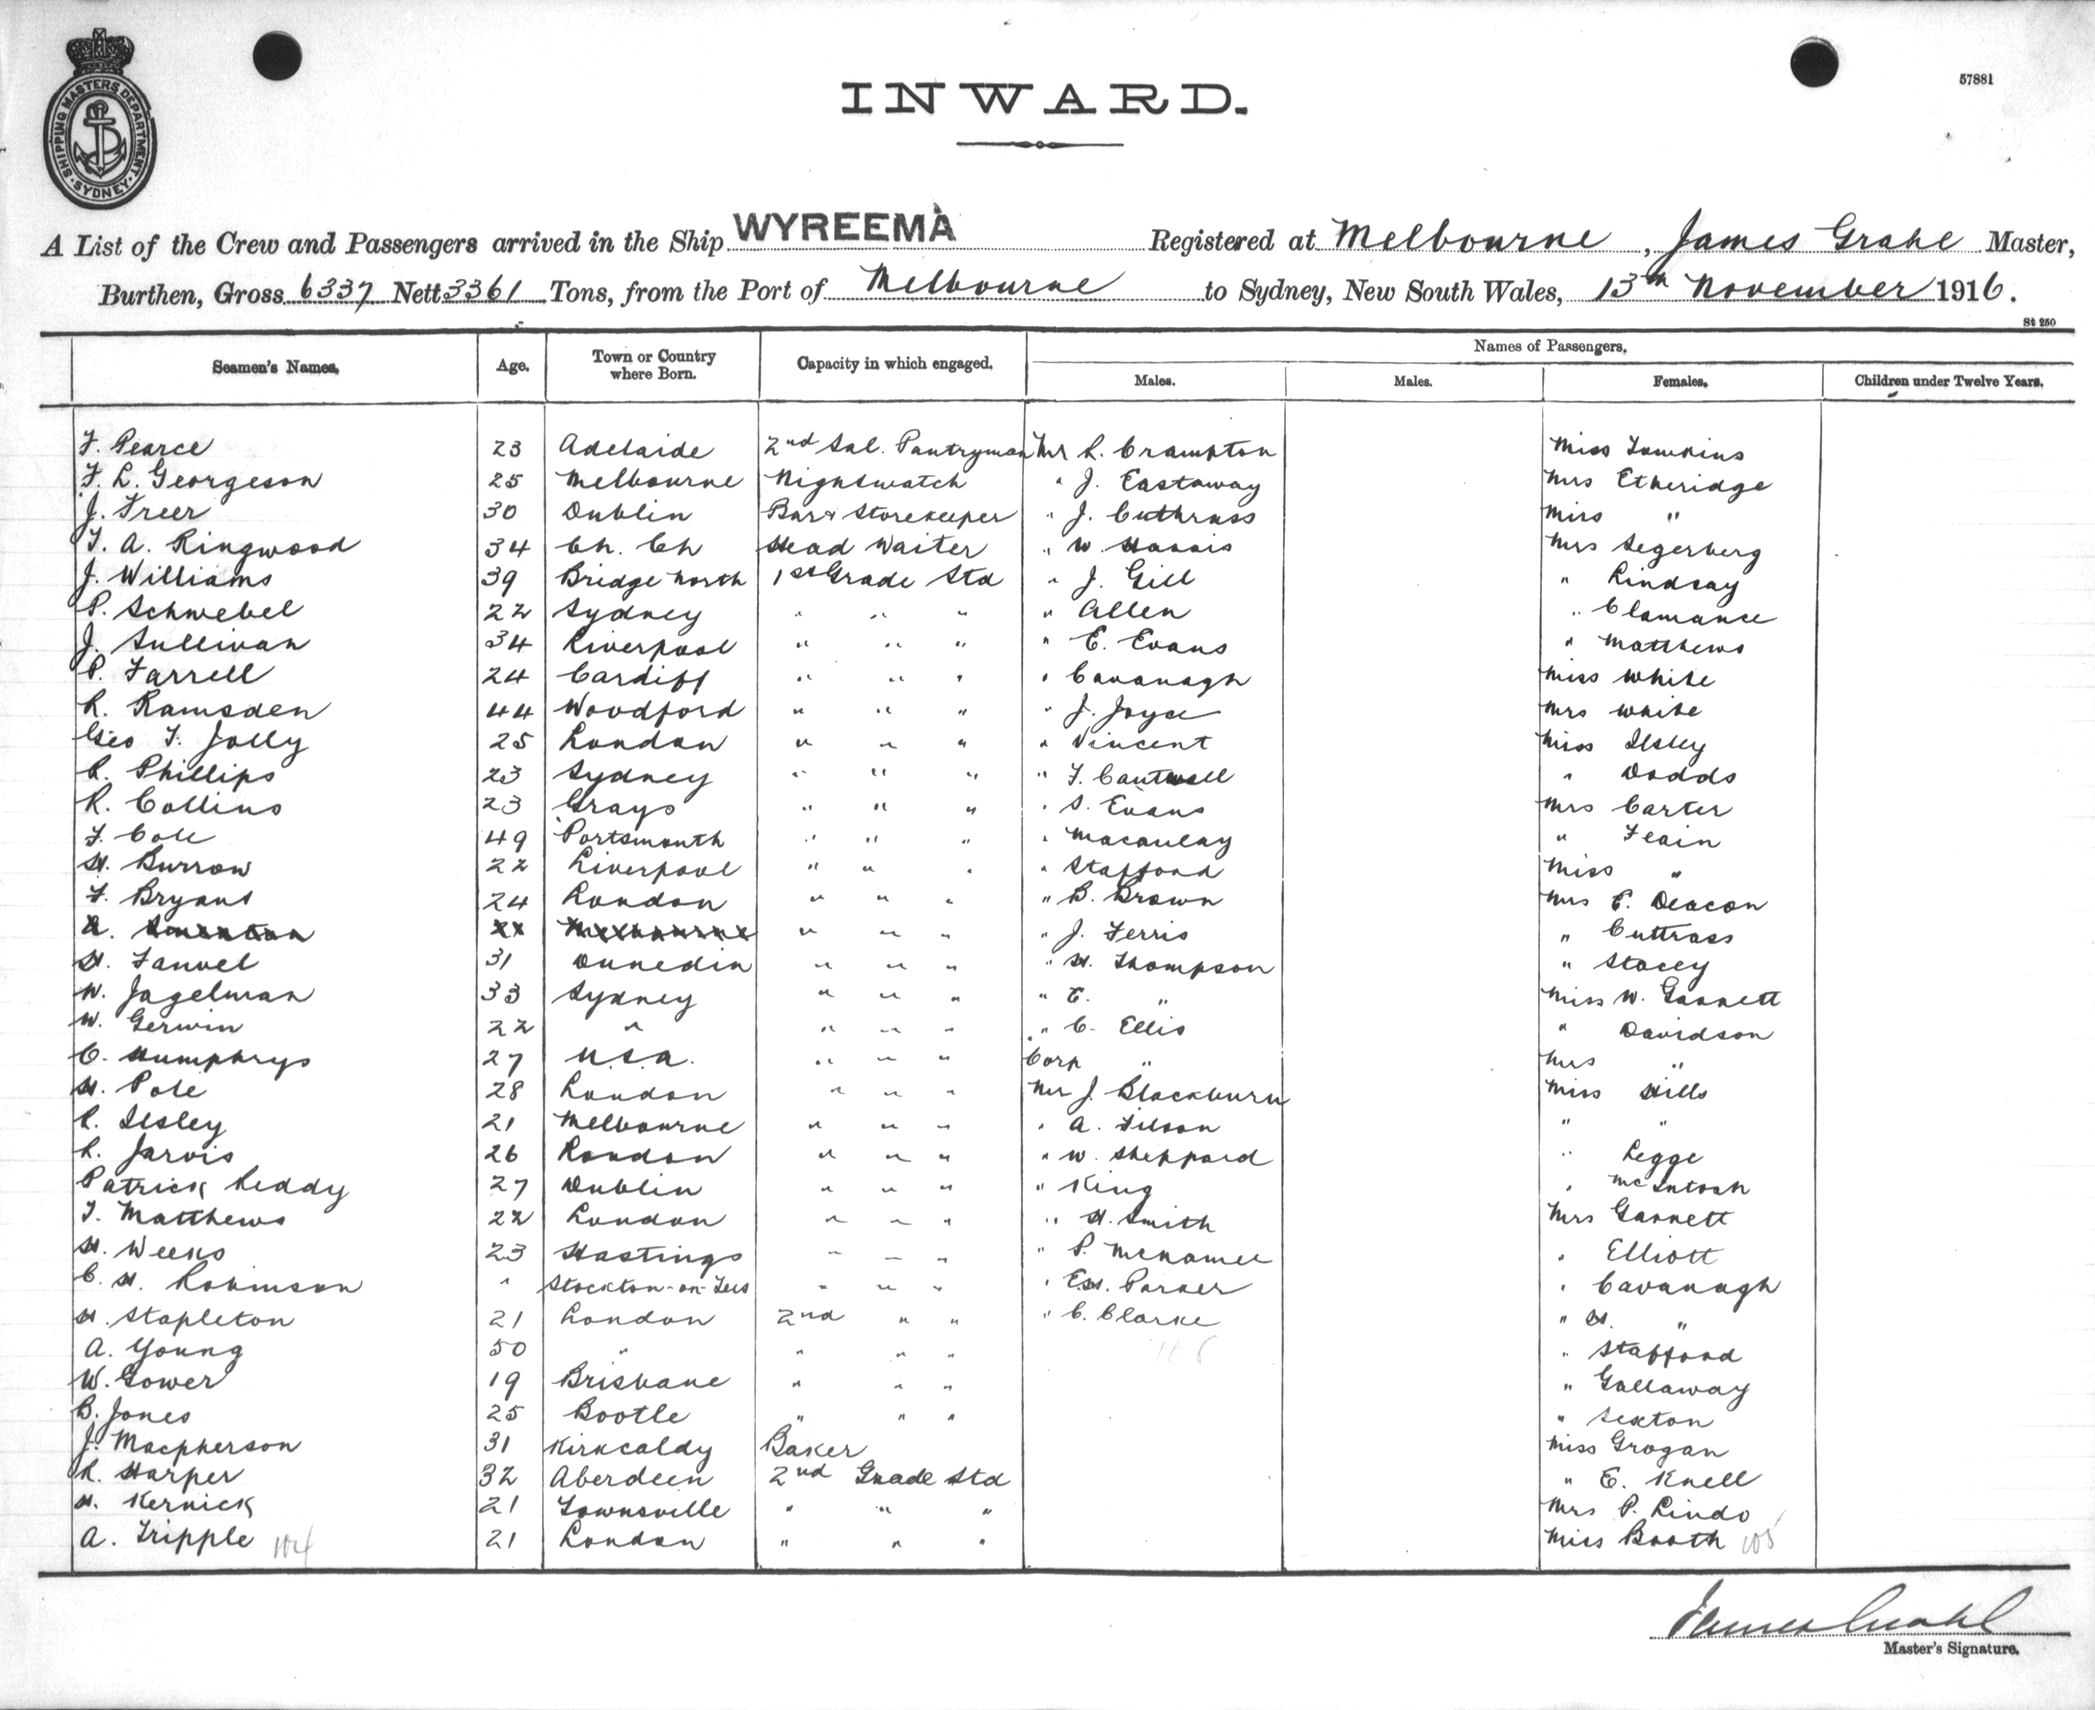 SHIPPING MASTERS DEPARTMENT
SYDNEY
57881
INWARD.
A List of the Crew and Passengers arrived in the Ship WYREEMA Registered at Melbourne, James Grahl Master,
Burthen, Gross 6337 Nett 3361 Tons, from the Port of Melbourne to Sydney, New South Wales, 13th November 1916.
St 250
Seamen's Names. Age. Town or Country where Born. Capacity in which engaged. Names of Passengers.
Males. Males. Females. Children under Twelve Years.
F. Pearce 23 Adelaide 2nd Sal. Pantryman Mr L. Crampton Miss Tomkins
F. L. Georgeson 25 Melbourne Nightwatch " J. Eastaway Mrs Etheridge
J. Freer 30 Dublin Bar & Storekeeper " J. Cuthrass Miss "
T. A. Ringwood 34 Ch. Ch Head Waiter " W. Harris Mrs Segerberg
J. Williams 39 Bridge North 1st Grade Std " J. Gill " Lindsay
P. Schwebel 22 Sydney " " " " Allen " Clamance
J. Sullivan 34 Liverpool " " " " E. Evans " Matthews
P. Farrell 24 Cardiff " " " " Cavanagh Miss White
R. Ramsden 44 Woodford " " " " J. Joyce Mrs White
Geo F. Jolly 25 London " " " " Vincent Miss Ilsley
R. Phillips 23 Sydney " " " " F. Cantwell " Dodds
R. Collins 23 Grays " " " " S. Evans Mrs Carter
F. Cole 49 Portsmouth " " " " Macaulay " Flain
H. Burrow 22 Liverpool " " " " Stafford Miss "
F. Bryant 24 London " " " " B. Brown Mrs E. Deacon
" " " " J. Ferris " Cuttrass
H. Fanvel 31 Dunedin " " " " H. Thompson " Stacey
W. Jagelman 33 Sydney " " " " E. " Miss W. Garnett
W. Gerwin 22 " " " " " C. Ellis " Davidson
C. Humphrys 27 U.S.A. " " " Corp " Mrs "
H. Pole 28 London " " " Mr J. Blackburn Miss Hills
R. Ilsley 21 Melbourne " " " " A. Filson " "
R. Jarvis 26 London " " " " W. Sheppard " Legge
Patrick Leddy 27 Dublin " " " " King " McIntosh
T. Matthews 22 London " " " " H. Smith Mrs Garnett
H. Weeks 23 Hastings " " " " P. McNamee " Elliott
C. H. Robinson " Stockton-on-Tees " " " " E.H. Parker " Cavanagh
H. Stapleton 21 London 2nd " " " C. Clarke " H. "
A. Young 50 " " " " " Stafford
W. Gower 19 Brisbane " " " " Gallaway
B. Jones 25 Bootle " " " " Sexton
J. Macpherson 31 Kirkcaldy Baker Miss Grogan
R. Harper 32 Aberdeen 2nd Grade Std " E. Knell
H. Kernick 21 Townsville " " " Mrs P. Lindo
A. Tripple 104 21 London " " " Miss Booth 105
James Grahl
Master's Signature.